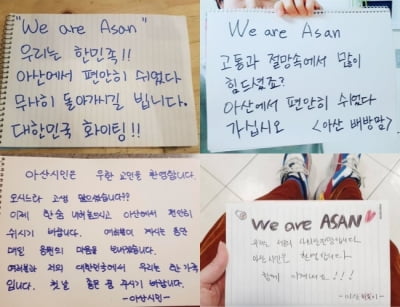 "We are Asan"
우리는 한민족!!
아산에서 편안히 쉬였다
무사히 돌아가시길 빕니다.
대한민국 화이팅!!
We are Asan
고통과 절망속에서 많이
힘드셨죠?
아산에서 편안히 쉬였다
가십시오 <아산 배방맘>
아산시민은 우한 교민을 환영합니다.
오시느라 고생 많으셨습니다??
이제 한숨 내려놓으시고 아산에서 편안히
쉬시기 바랍니다. 여러분이 계시는 동안
매일 응원의 마음을 보내겠습니다.
여러분과 저희 대한민국에서 우리는 한 가족
입니다. 첫날 좋은 꿈 꾸시기 바랍니다.
-아산시민-
We are ASAN
환영합니다
함께 이겨내요!!!